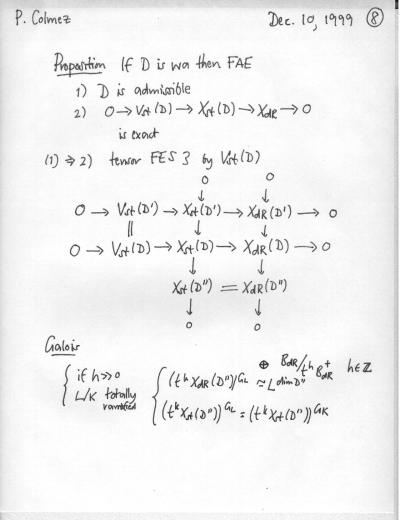 P. Colmez Dec. 10, 1999 ⑧
Proposition If D is wa then FAE
1) D is admissible
2) 0 → Vst(D) → Xst(D) → XdR → 0
is exact
(1) ⇒ 2) tensor FES 3 by Vst(D)
0 0
↓ ↓
0 → Vst(D') → Xst(D') → XdR(D') → 0
|| ↓ ↓
0 → Vst(D) → Xst(D) → XdR(D) → 0
↓ ↓
Xst(D'') = XdR(D'')
↓ ↓
0 0
Galois
⊕ BdR/t^h B^+_dR h∈ℤ
{ if h>>0 { (t^h XdR(D''))^GL ≈ L^dim D''
L/K totally
ramified (t^k Xst(D''))^GL = (t^k Xst(D''))^GK